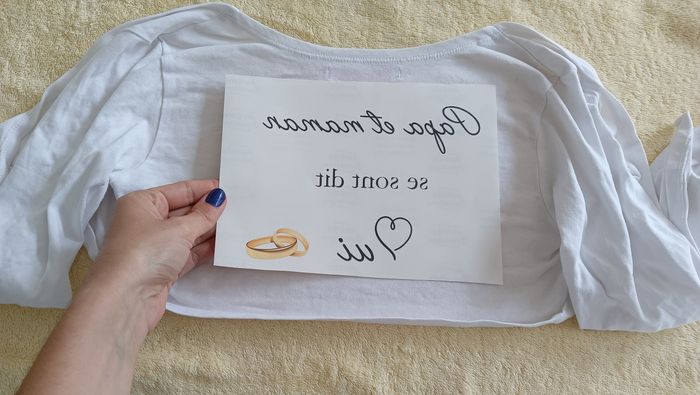 Papa et maman
se sont dit
Oui